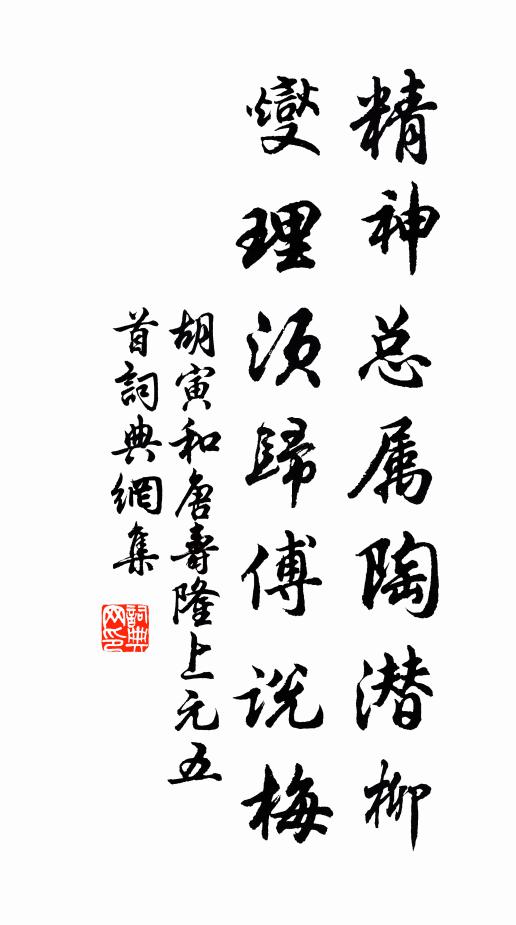 精神总属陶潜柳
燮理须歸傅说梅
胡寅和唐壽隆上元五
首詞典網集
詞典網印